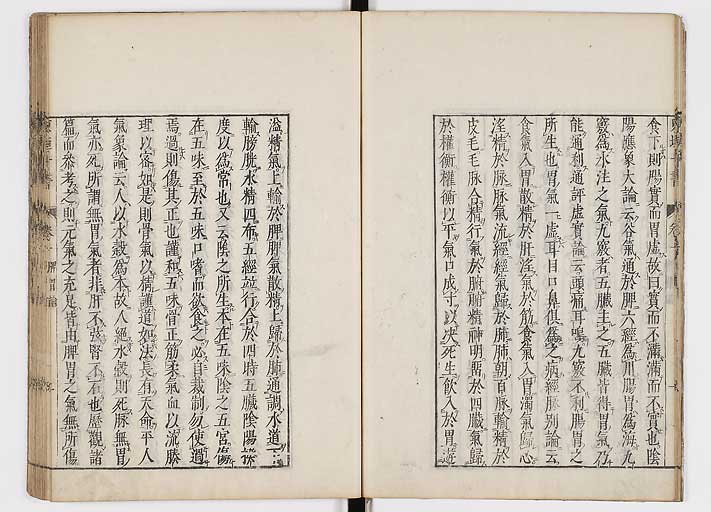 食下則腸實而胃虛故曰實而不滿滿而不實也陰
陽應象大論云谷氣通於脾六經為川腸胃為海九
竅為水注之氣九竅者五臟主之五臟皆得胃氣乃
能通利通評虛實論云頭痛耳鳴九竅不利腸胃之
所生也胃氣一虛耳目口鼻俱為之病經脈別論云
食氣入胃散精於肝淫氣於筋食氣入胃濁氣歸心
淫精於脈脈氣流經經氣歸於肺肺朝百脈輸精於
皮毛毛脈合精行氣於腑腑精神明留於四臟氣歸
於權衡權衡以平氣口成寸以決死生飲入於胃遊
溢精氣上輸於脾脾氣散精上歸於肺通調水道下
輸膀胱水精四布五經並行合於四時五臟陰陽揆
度以為常也又云陰之所生本在五味陰之五宮傷
在五味至於五味口嗜而欲食之必自裁制勿使過
焉過則傷其正也謹和五味骨正筋柔氣血以流腠
理以密如是則骨氣以精謹道如法長有天命平人
氣象論云人以水穀為本故人絕水穀則死脈無胃
氣亦死所謂無胃氣者非肝不弦腎不石也歷觀諸
篇而參考之則元氣之充足皆由脾胃之氣無所傷